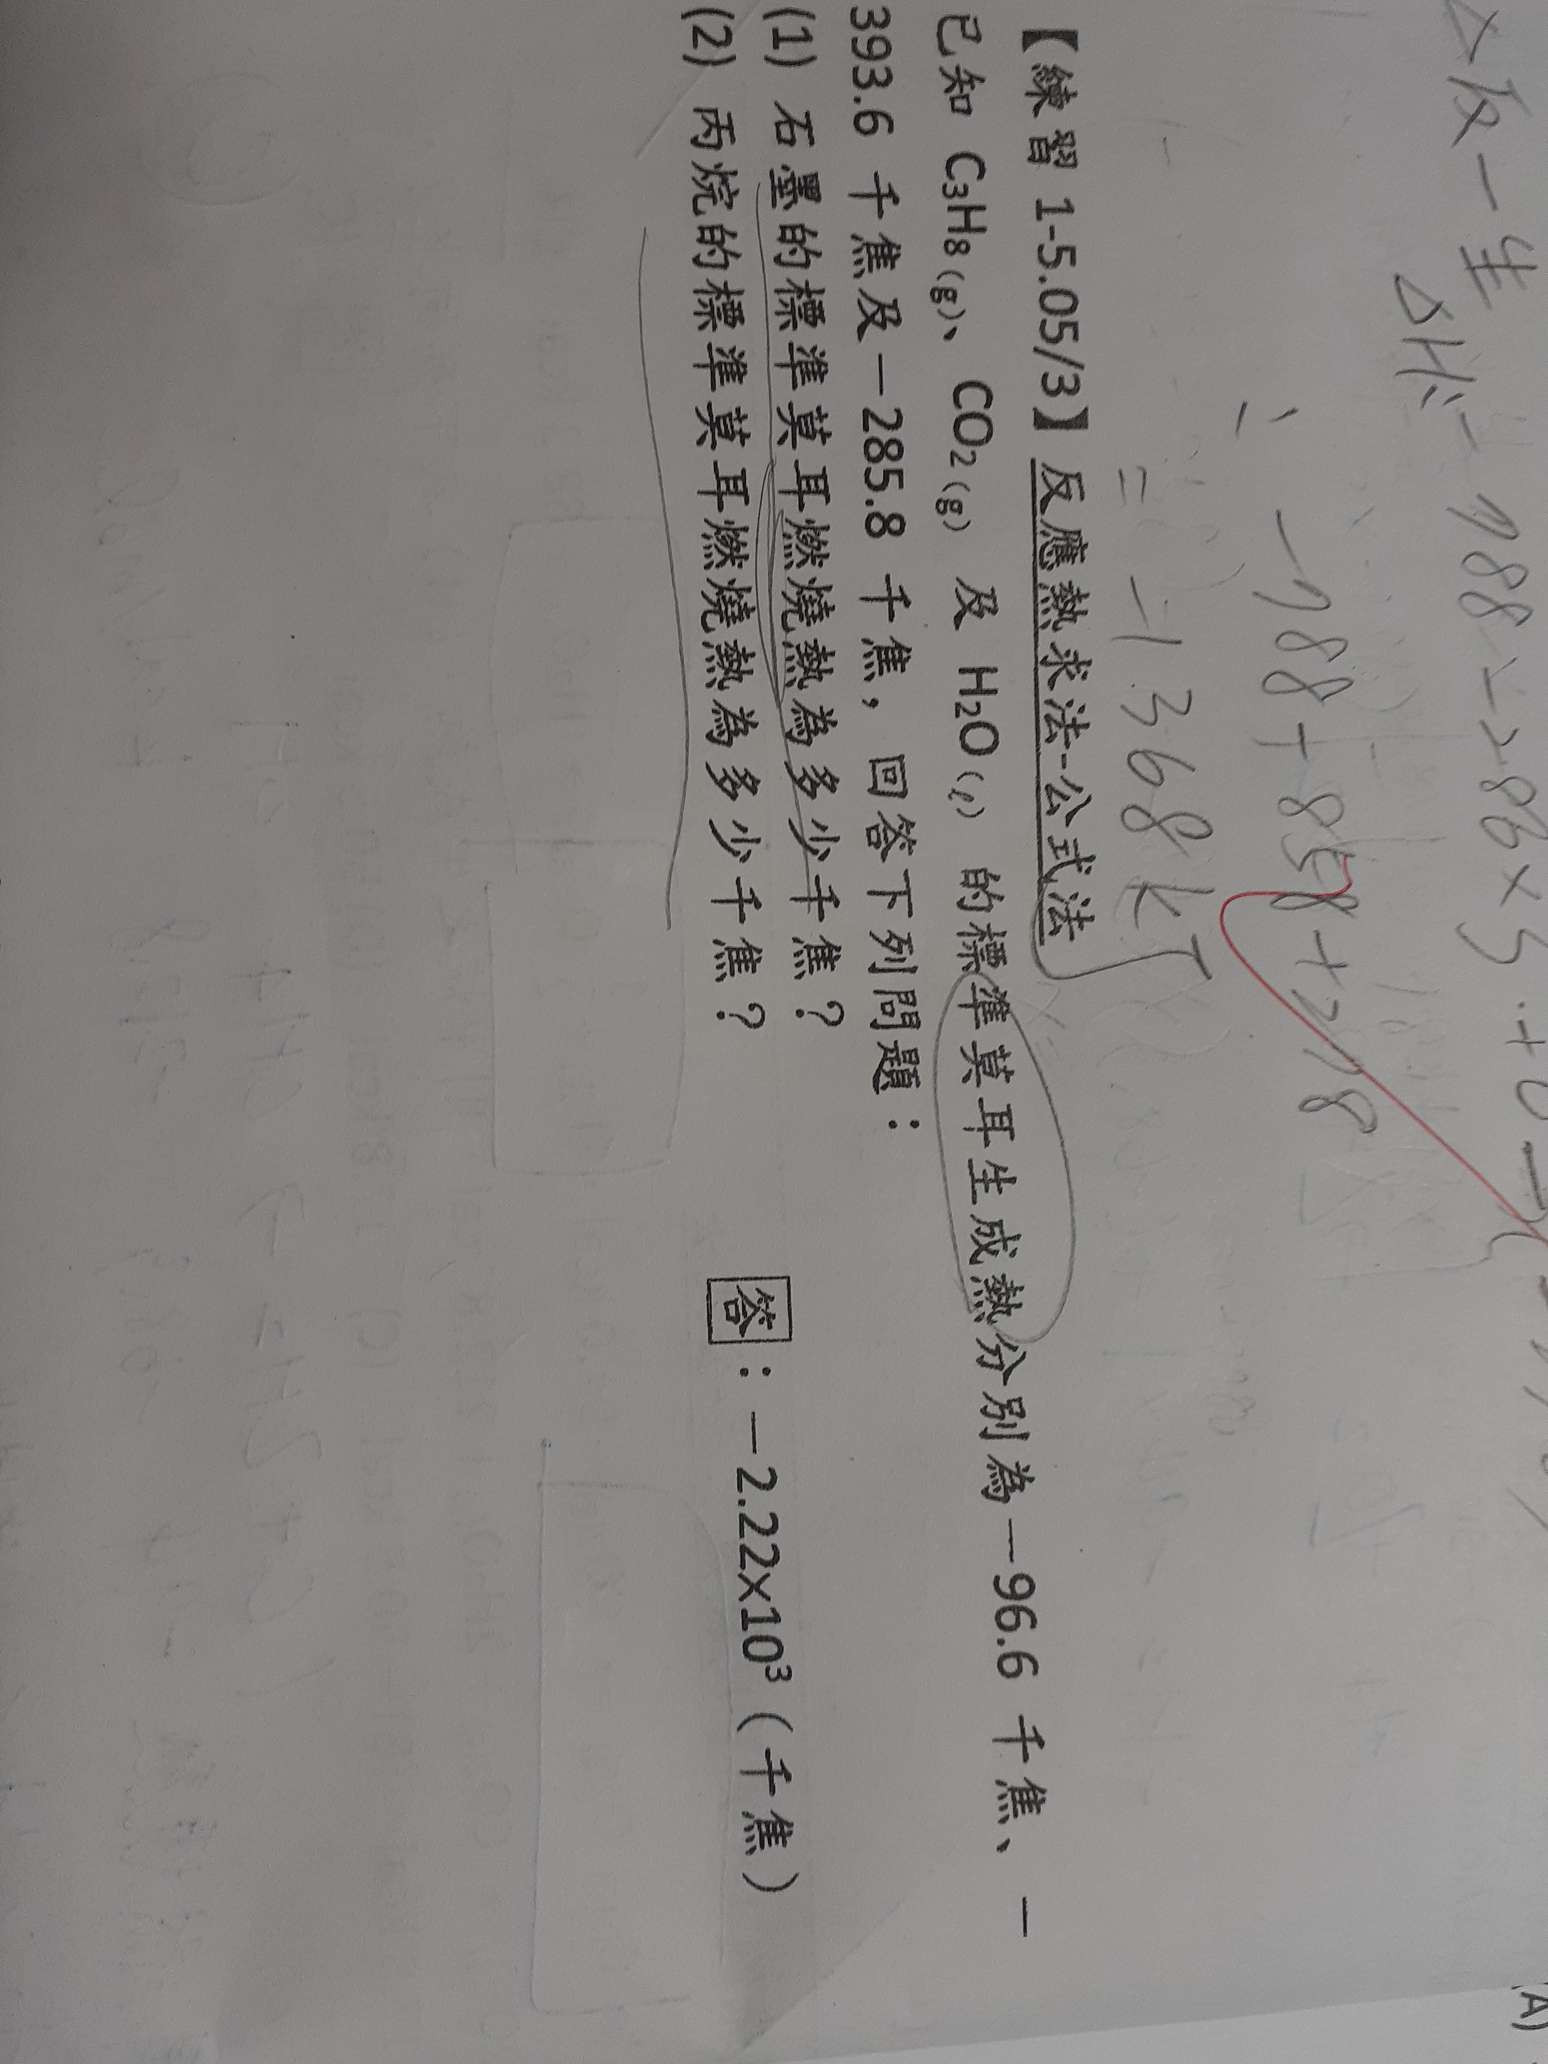 反－生
ΔH=－788－286×3+0
－788+858+278
=－1368kJ
【練習 1-5.05/3】反應熱求法-公式法
已知 C₃H₈(g)、CO₂(g) 及 H₂O(ℓ) 的標準莫耳生成熱分別為－96.6 千焦、－
393.6 千焦及－285.8 千焦，回答下列問題：
(1) 石墨的標準莫耳燃燒熱為多少千焦？
(2) 丙烷的標準莫耳燃燒熱為多少千焦？ 答：－2.22×10³（千焦）
A)